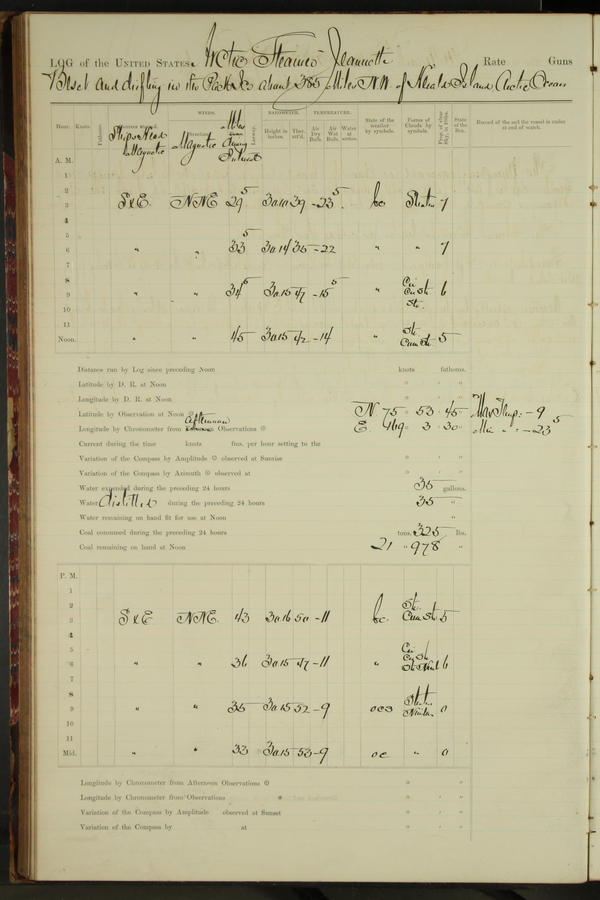 LOG of the UNITED STATES Arctic Steamer Jeannette Rate Guns
Beset and drifting in the Pack Ice about 385 Miles N.W. of Herald Island Arctic Ocean
Hour. Knots. Ship's Head Magnetic WINDS. Direction Magnetic Miles during Interval Leeway. BAROMETER. Height in inches. Ther. att'd. TEMPERATURE. Air Dry Bulb. Air Wet Bulb. Water at surface. State of the weather by symbols. Forms of Clouds by symbols. State of the Sea. Record of the sail the vessel is under at end of watch.
A. M.
1
2
3 S & E. NNE 29 5 30.10 39 -23 5 bc Stratus 7
4
5
6 " " 33 5 30.14 35 -22 " " 7
7
8
9 " " 34 5 30.15 47 -15 5 " Cir Cir St. Str. 6
10
11
Noon. " " 45 30.15 42 -14 " Str. Cum St. 5
Distance run by Log since preceding Noon knots fathoms.
Latitude by D. R. at Noon ° ' "
Longitude by D. R. at Noon ° ' "
Latitude by Observation at Noon N 75 ° 53 ' 45 " Max Temp: -9
Longitude by Chronometer from afternoon Observations E. 169 ° 3 ' 30 " Min " : -23 5
Current during the time knots fms. per hour setting to the
Variation of the Compass by Amplitude observed at Sunrise ° ' "
Variation of the Compass by Azimuth observed at ° ' "
Water expended during the preceding 24 hours 35 gallons.
Water distilled during the preceding 24 hours 35 "
Water remaining on hand fit for use at Noon "
Coal consumed during the preceding 24 hours tons. 325 lbs.
Coal remaining on hand at Noon 21 " 978 "
P. M.
1
2
3 S & E NNE. 43 30.16 50 -11 bc. Str. Cum St. 5
4
5
6 " " 36 30.15 47 -11 " Cir Cir St. 6
7
8
9 " " 35 30.15 52 -9 ocs Stratus Nimbus 0
10
11
Mid. " " 33 30.15 53 -9 oc " 0
Longitude by Chronometer from Afternoon Observations ° ' "
Longitude by Chronometer from Observations ° ' "
Variation of the Compass by Amplitude observed at Sunset ° ' "
Variation of the Compass by at ° ' "